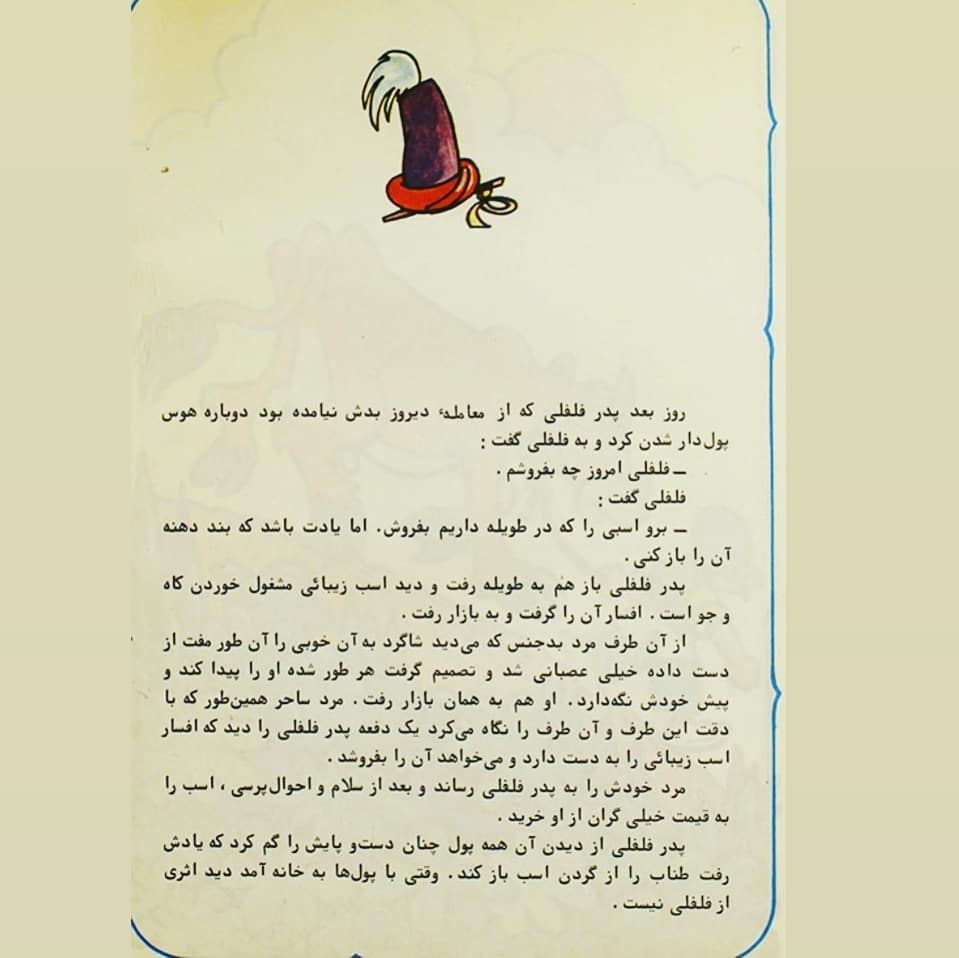 روز بعد پدر فلفلی که از معاملهٔ دیروز بدش نیامده بود دوباره هوس
پول‌دار شدن کرد و به فلفلی گفت :
ــ فلفلی امروز چه بفروشم .
فلفلی گفت :
ــ برو اسبی را که در طویله داریم بفروش. اما یادت باشد که بند دهنه
آن را باز کنی .
پدر فلفلی باز هم به طویله رفت و دید اسب زیبائی مشغول خوردن کاه
و جو است . افسار آن را گرفت و به بازار رفت .
از آن طرف مرد بدجنس که می‌دید شاگرد به آن خوبی را آن طور مفت از
دست داده خیلی عصبانی شد و تصمیم گرفت هر طور شده او را پیدا کند و
پیش خودش نگه‌دارد . او هم به همان بازار رفت . مرد ساحر همین‌طور که با
دقت این طرف و آن طرف را نگاه می‌کرد یک دفعه پدر فلفلی را دید که افسار
اسب زیبائی را به دست دارد و می‌خواهد آن را بفروشد .
مرد خودش را به پدر فلفلی رساند و بعد از سلام و احوال‌پرسی ، اسب را
به قیمت خیلی گران از او خرید .
پدر فلفلی از دیدن آن همه پول چنان دست‌و پایش را گم کرد که یادش
رفت طناب را از گردن اسب باز کند . وقتی با پول‌ها به خانه آمد دید اثری
از فلفلی نیست .